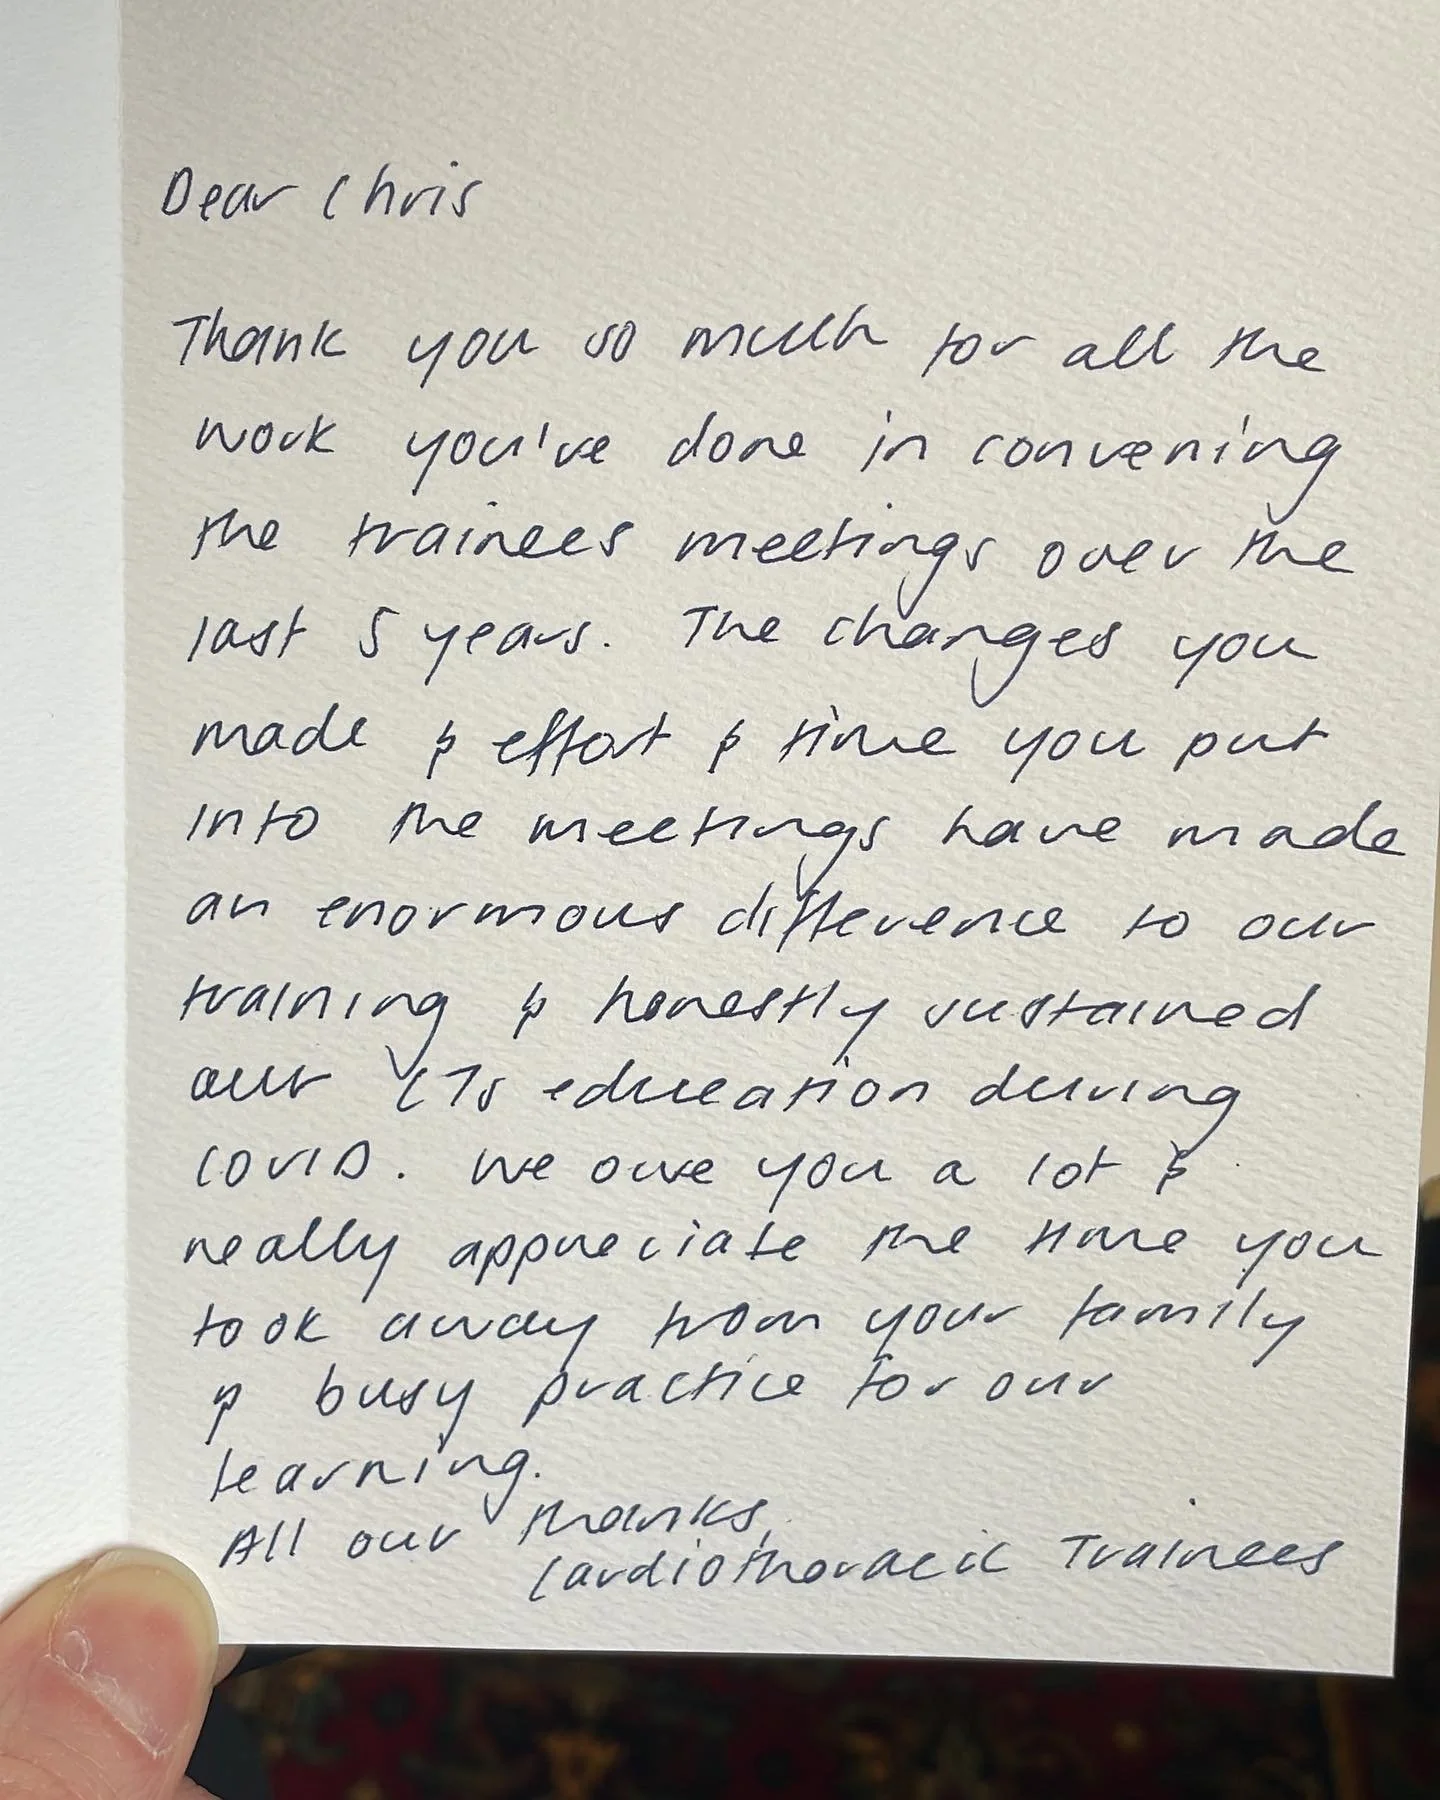 Dear Chris
Thank you so much for all the
work you've done in convening
the trainees meetings over the
last 5 years. The changes you
made & effort & time you put
into the meetings have made
an enormous difference to our
training & honestly sustained
our CTS education during
COVID. We owe you a lot &
really appreciate the time you
took away from your family
& busy practice for our
learning.
All our thanks,
Cardiothoracic Trainees